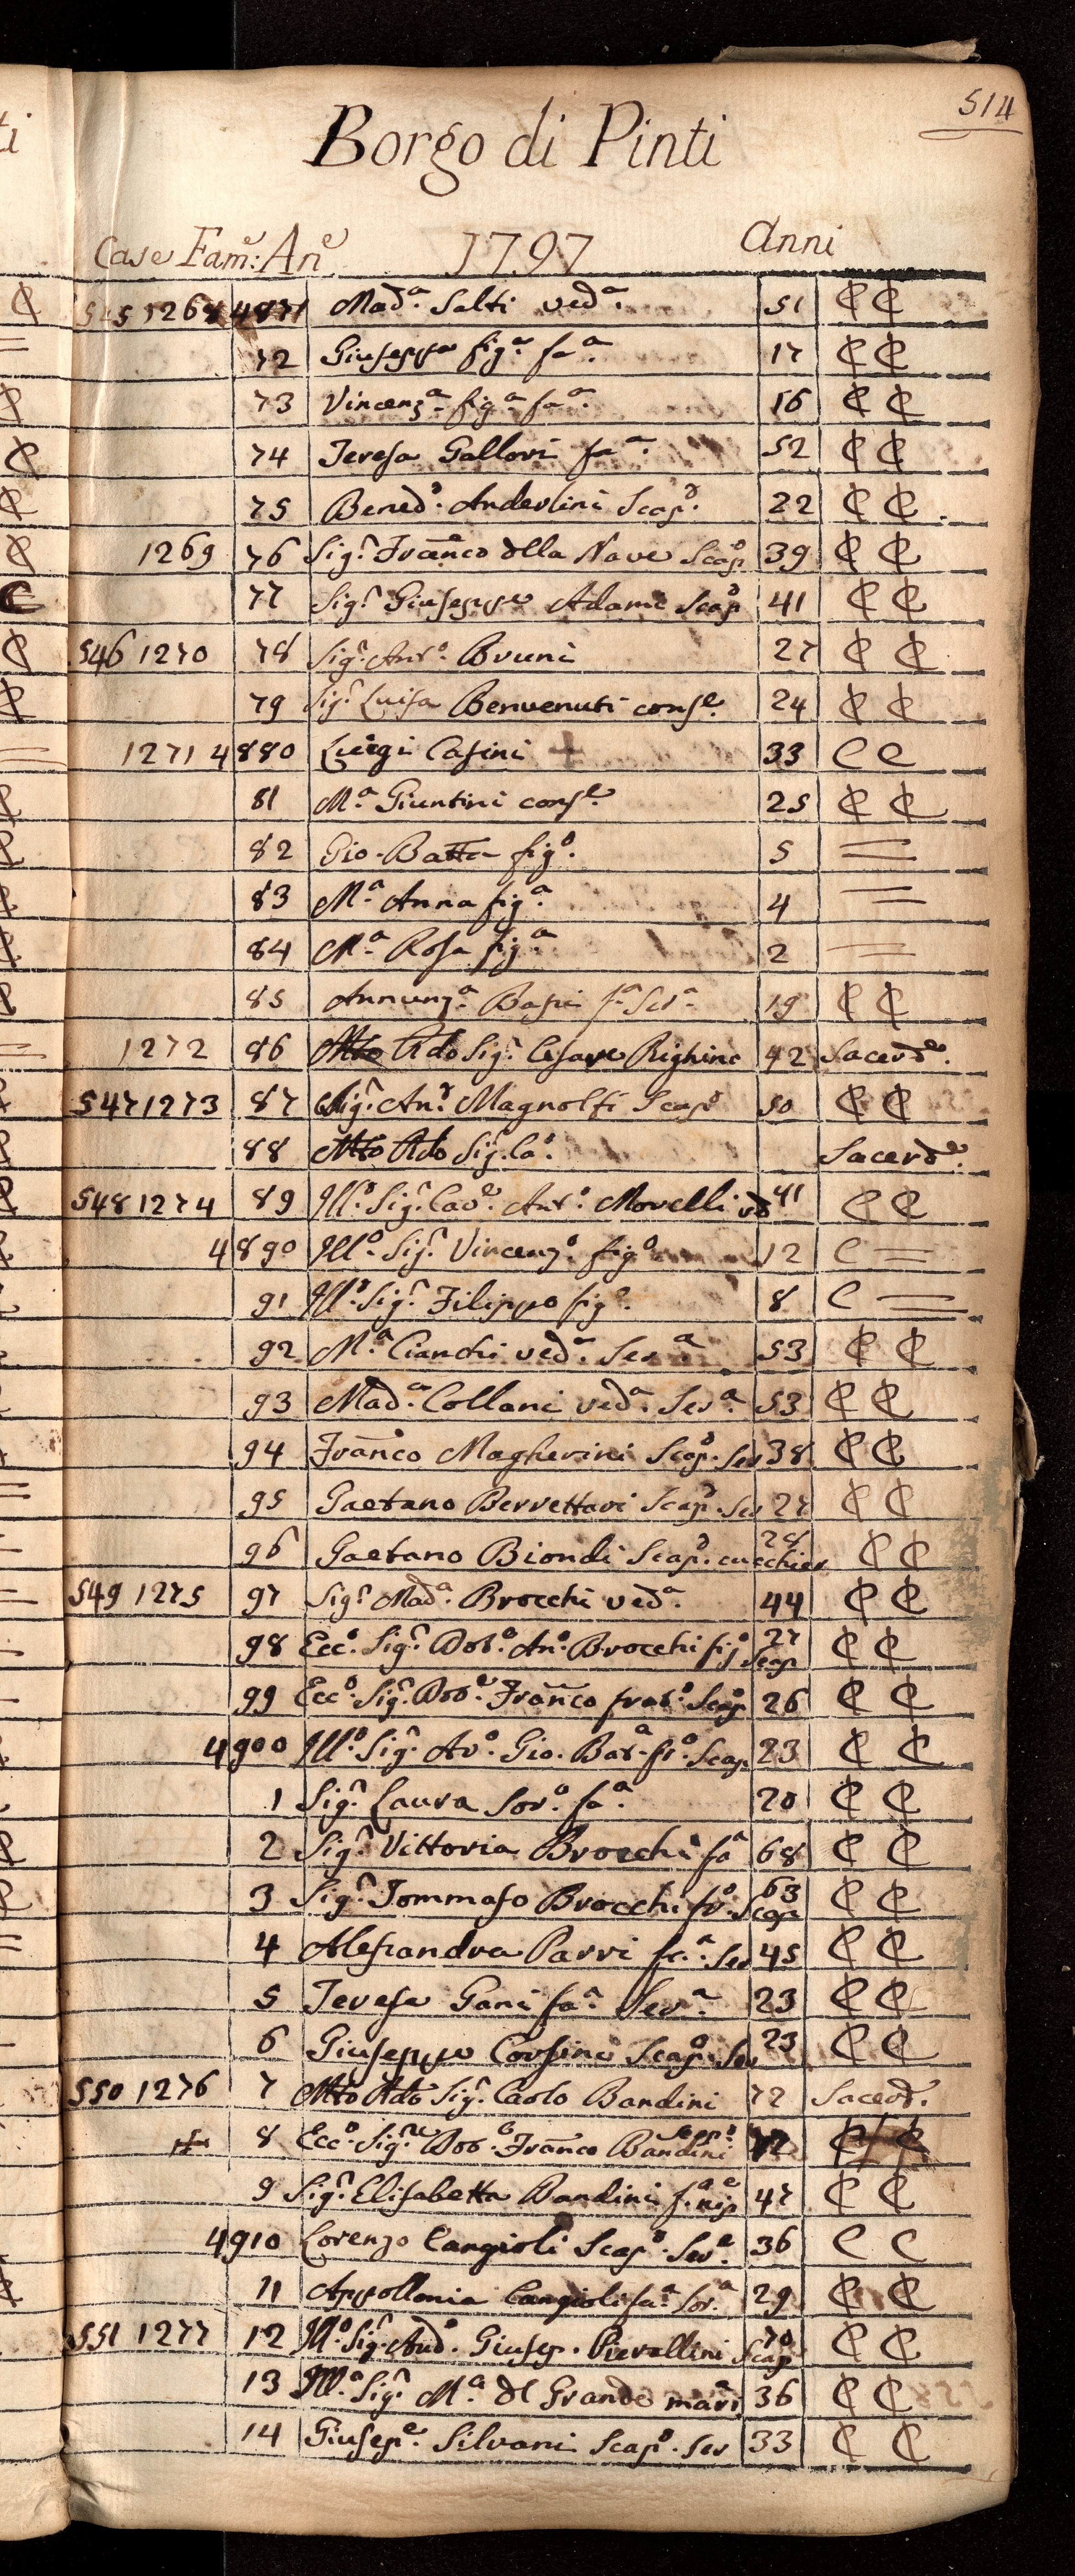 514
Borgo di Pinti
Case Fam.e: An.e 1797 Anni
545 1268 4871 Mad.a Salti ved.a 51 C C
72 Giuseppa fig.a fa.a 17 C C
73 Vincenz.a fig.a fa.a 16 C C
74 Teresa Gallori fa.a 52 C C
75 Bened.o Anderlini Scap.o 22 C C
1269 76 Sig.r Franco dlla Nave Scap.o 39 C C
77 Sig.r Giuseppe Adami Scap.o 41 C C
546 1270 78 Sig.r Ant.o Bruni 27 C C
79 Sig.r Luisa Benvenuti cons.e 24 C C
1271 4880 Luigi Casini + 33 C C
81 M.a Giuntini cons.e 25 C C
82 Gio. Batta fig.o 5 =
83 M.a Anna fig.a 4 =
84 M.a Rosa fig.a 2 =
85 Annunz.a Basri f.a Ser.a 19 C C
1272 86 Mto Rdo Sig.r Cesare Righini 42 Sacerd.e
547 1273 87 Sig.r An.o Magnolfi Scap.o 50 C C
88 Mto Rdo Sig. Ca.o Sacerd.e
548 1274 89 Ill.o Sig.r Cav.e Ant.o Morelli vd.o 41 C C
4890 Ill.o Sig.r Vincenz.o fig.o 12 C =
91 Ill.o Sig.r Filippo fig.o 8 C =
92 M.a Cianchi ved.a Ser.a 53 C C
93 Mad.a Collani ved.a Ser.a 53 C C
94 Franco Magherini Scap.o Ser 38 C C
95 Gaetano Berrettari Scap.o Ser 27 C C
96 Gaetano Biondi Scap.o cucchier 28 C C
549 1275 97 Sig.r Mad.a Brocchi ved.a 44 C C
98 Ecc.o Sig.r Dot.e An.o Brocchi fig.o Scap 27 C C
99 Ecc.o Sig.r Dot.e Franco frat.o Scap.o 26 C C
4900 Ill.o Sig.r Av.o Gio. Bat.a fr.o Scap. 23 C C
1 Sig.r Laura Sor.a fa.a 20 C C
2 Sig.r Vittoria Brocchi fa.a 68 C C
3 Sig.r Tommaso Brocchi fr.o Scap 63 C C
4 Alesandra Parri fa.a Ser 45 C C
5 Teresa Gani fa.a Ser.a 23 C C
6 Giuseppe Corsini Scap.o Ser 23 C C
550 1276 7 Mto Rdo Sig.r Carlo Bandini 72 Sacerd.
8 Ecc.o Sig.re Dot.e Franco Bandini
9 Sig.r Elisabetta Bandini f.a nip.e 47 C C
4910 Lorenzo Cangioli Scap.o Ser.e 36 C C
11 Appollonia Cangioli fa.a Sor.a 29 C C
551 1277 12 Ill.o Sig. Aud.o Giusep. Pierallini Scap.o 70 C C
13 Ill.a Sig.r M.a dl Grande mari. 36 C C
14 Giusep.e Silvani Scap.o Ser 33 C C